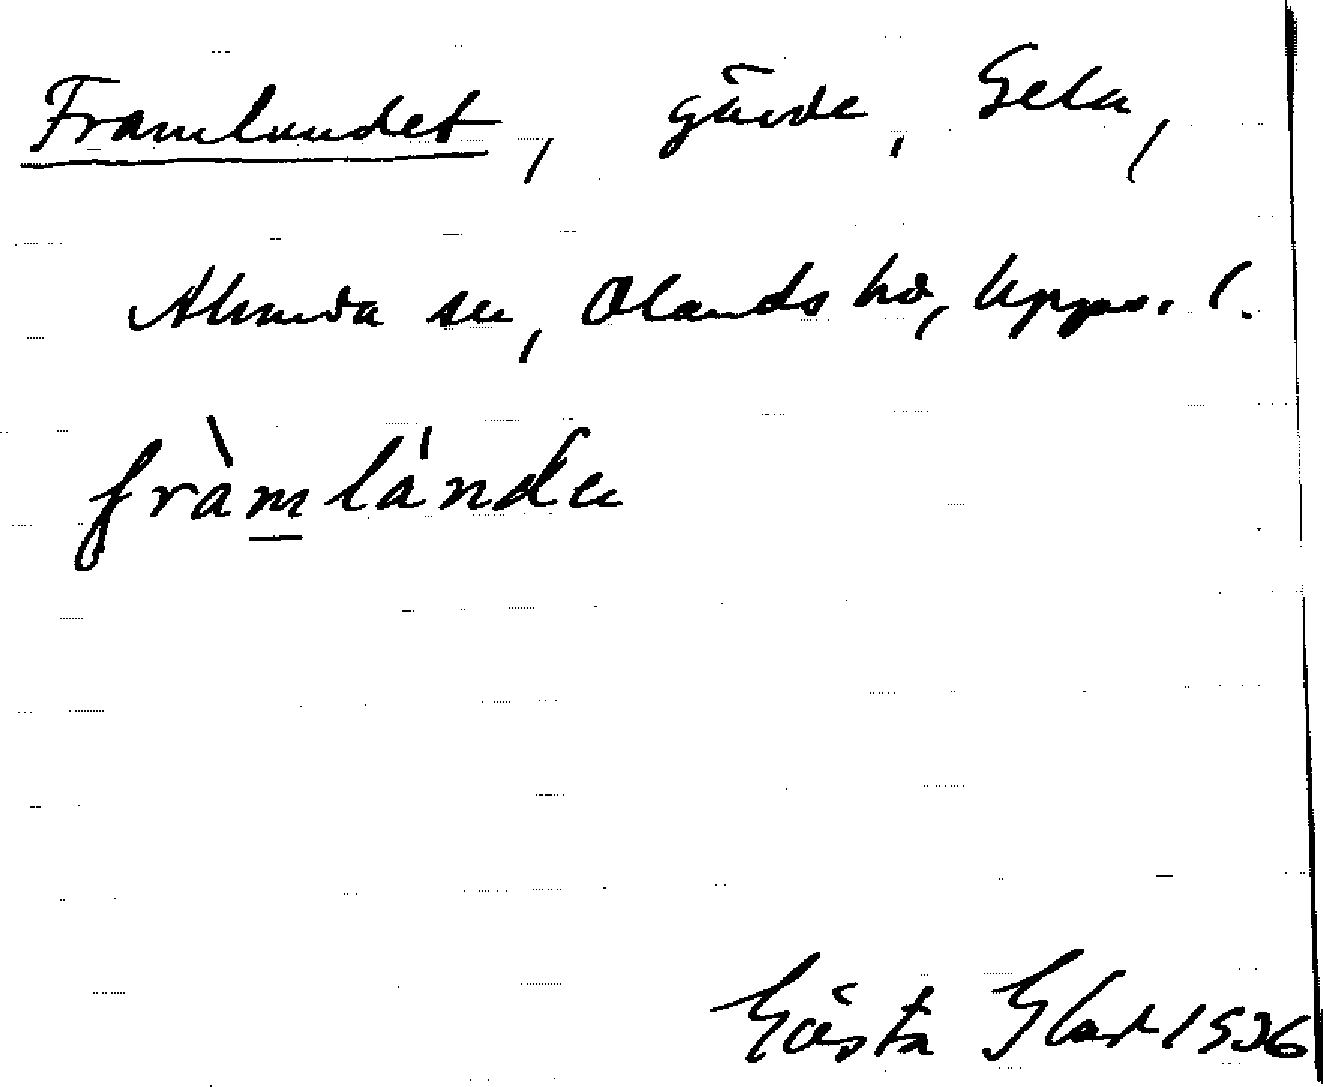 Framlandet, gärde, Gela,
Almunda sn, Olands hd, Upps. l.
fràmlánda
Gösta 1936